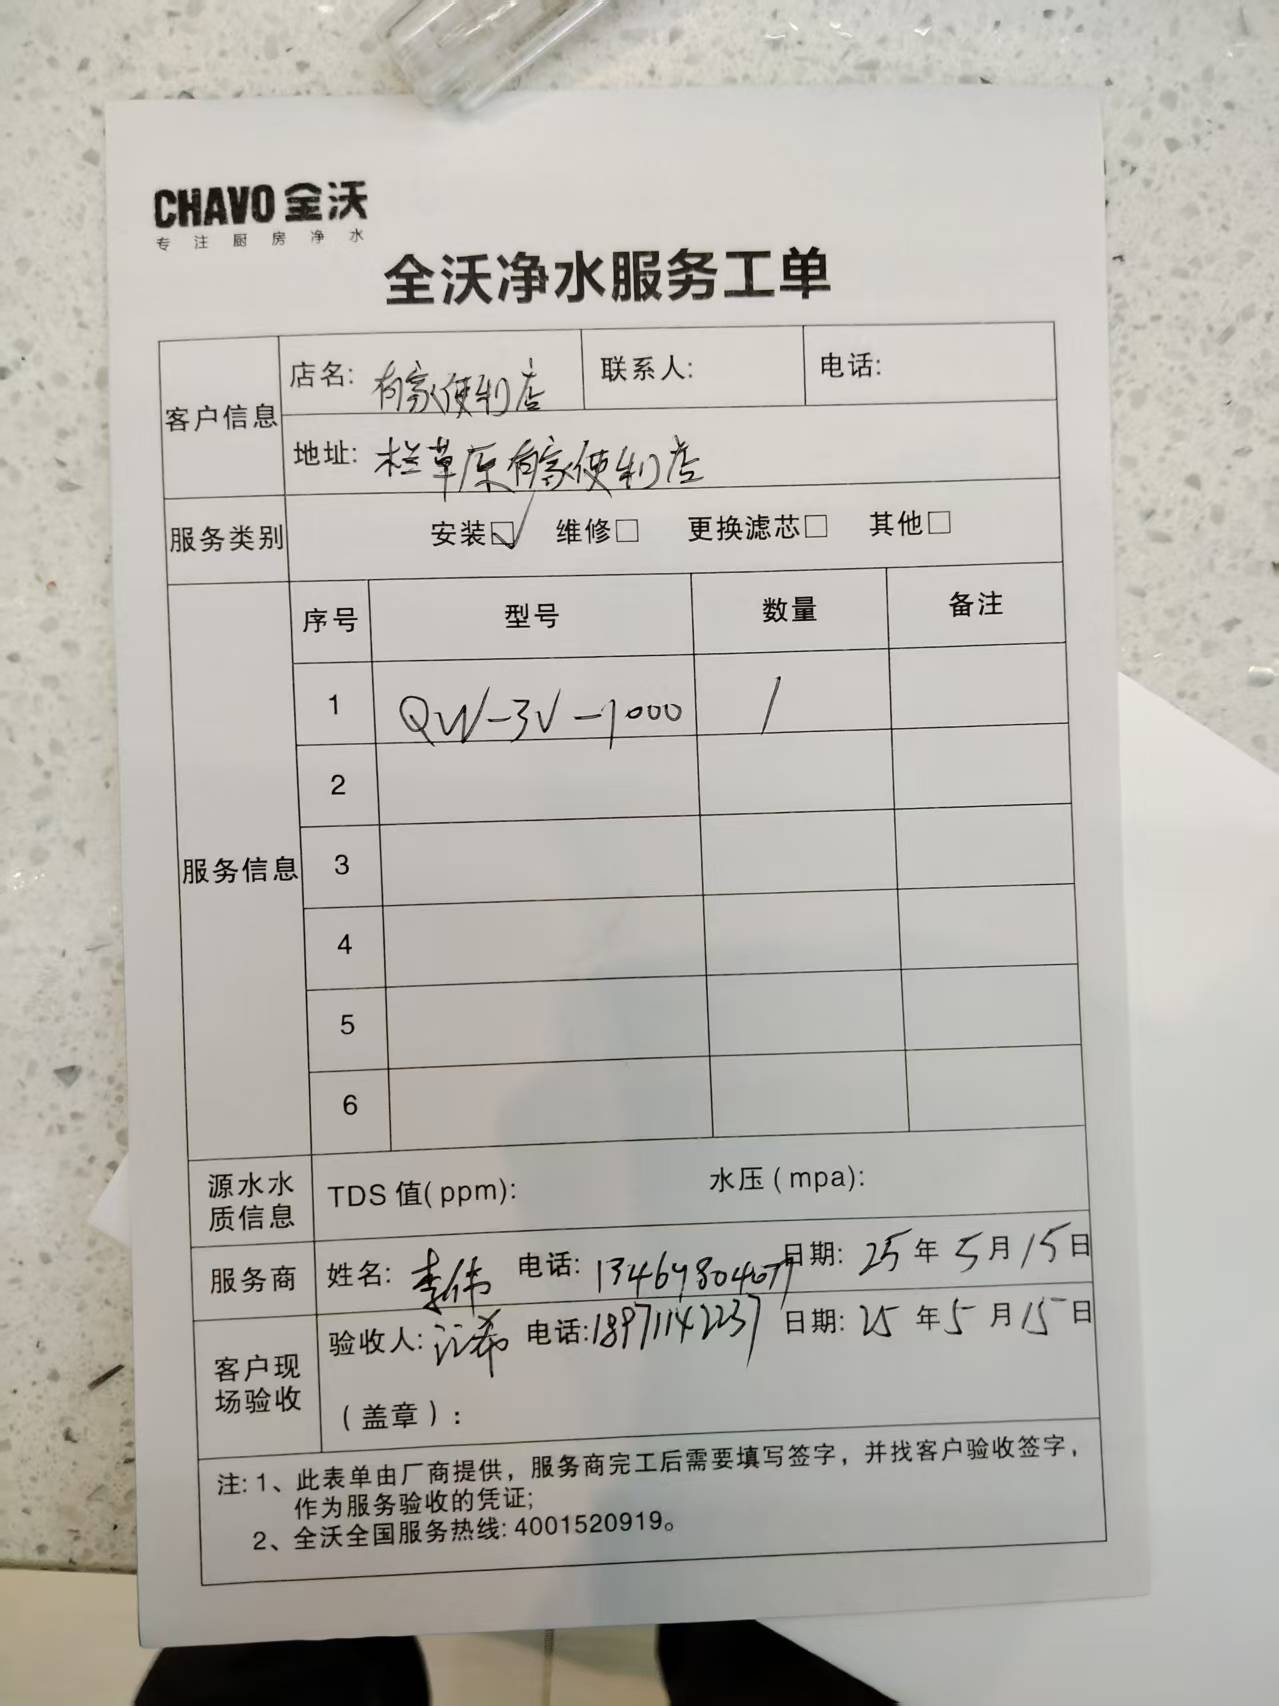 CHAVO 全沃
专注厨房净水
全沃净水服务工单
客户信息
店名: 有家便利店 联系人: 电话:
地址: 栏草原有家便利店
服务类别 安装☑ 维修□ 更换滤芯□ 其他□
服务信息
序号 型号 数量 备注
1 QW-3V-1000 1
2
3
4
5
6
源水水质信息 TDS 值(ppm): 水压(mpa):
服务商 姓名: 李伟 电话: 日期: 25年5月15日
客户现场验收 验收人: 电话:18971142237 日期: 25年5月15日
(盖章):
注: 1、此表单由厂商提供，服务商完工后需要填写签字，并找客户验收签字，
作为服务验收的凭证;
2、全沃全国服务热线: 4001520919。